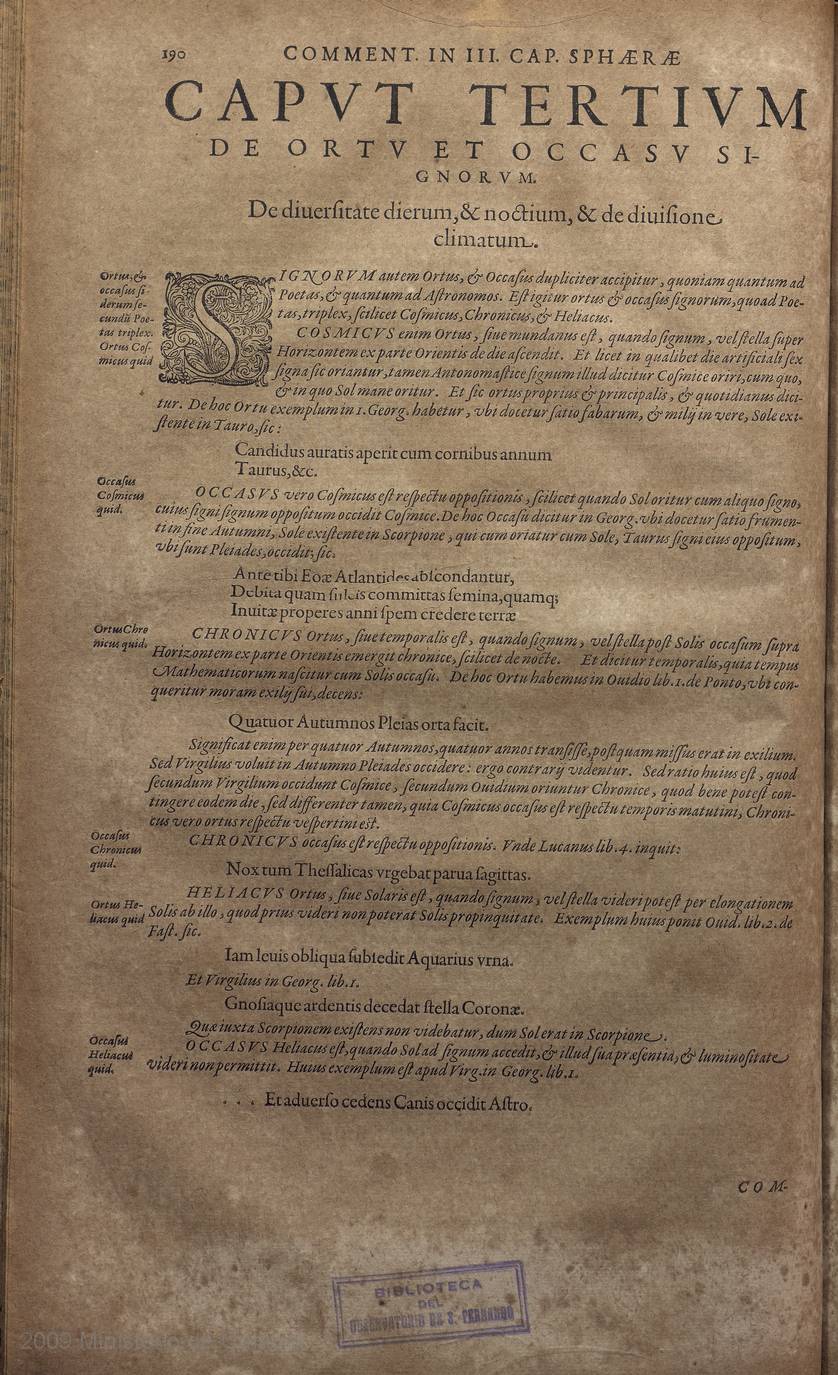 190 COMMENT. IN III. CAP. SPHÆRÆ
CAPVT TERTIVM
DE ORTV ET OCCASV SI-
GNORVM.
De diuerſitate dierum, & noctium, & de diuiſione
climatum.
Ortus, &
occaſus ſi-
derum ſe-
cundū Poe-
tas triplex.
Ortus Coſ-
micus quid
SIGNORVM autem Ortus, & Occaſus dupliciter accipitur, quoniam quantum ad
Poetas, & quantum ad Aſtronomos. Eſt igitur ortus & occaſus ſignorum, quoad Poe-
tas, triplex, ſcilicet Coſmicus, Chronicus, & Heliacus.
COSMICVS enim Ortus, ſiue mundanus eſt, quando ſignum, vel ſtella ſuper
Horizontem ex parte Orientis de die aſcendit. Et licet in qualibet die artificiali ſex
ſigna ſic oriantur, tamen Antonomaſtice ſignum illud dicitur Coſmice oriri, cum quo,
& in quo Sol mane oritur. Et ſic ortus proprius & principalis, & quotidianus dici-
tur. De hoc Ortu exemplum in 1. Georg. habetur, vbi docetur ſatio fabarum, & milij in vere, Sole exi-
ſtente in Tauro, ſic:
Candidus auratis aperit cum cornibus annum
Taurus, &c.
Occaſus
Coſmicus
quid.
OCCASVS vero Coſmicus eſt reſpectu oppoſitionis, ſcilicet quando Sol oritur cum aliquo ſigno,
cuius ſigni ſignum oppoſitum occidit Coſmice. De hoc Occaſu dicitur in Georg. vbi docetur ſatio frumen-
ti in fine Autumni, Sole exiſtente in Scorpione, qui cum oriatur cum Sole, Taurus ſigni eius oppoſitum,
vbi ſunt Pleiades, occidit; ſic.
Ante tibi Eoæ Atlantides abſcondantur,
Debita quam ſulcis committas ſemina, quamq;
Inuitæ properes anni ſpem credere terræ
Ortus Chro
nicus quid.
CHRONICVS Ortus, ſiue temporalis eſt, quando ſignum, vel ſtella poſt Solis occaſum ſupra
Horizontem ex parte Orientis emergit chronice, ſcilicet de nocte. Et dicitur temporalis, quia tempus
Mathematicorum naſcitur cum Solis occaſu. De hoc Ortu habemus in Ouidio lib. 1. de Ponto, vbi con-
queritur moram exilij ſui, decens:
Quatuor Autumnos Pleias orta facit.
Significat enim per quatuor Autumnos, quatuor annos tranſiſſe, poſtquam miſſus erat in exilium.
Sed Virgilius voluit in Autumno Pleiades occidere: ergo contrarij videntur. Sed ratio huius eſt, quod
ſecundum Virgilium occidunt Coſmice, ſecundum Ouidium oriuntur Chronice, quod bene poteſt con-
tingere eodem die, ſed differenter tamen, quia Coſmicus occaſus eſt reſpectu temporis matutini, Chroni-
cus vero ortus reſpectu veſpertini eſt.
Occaſus
Chronicus
quid.
CHRONICVS occaſus eſt reſpectu oppoſitionis. Vnde Lucanus lib. 4. inquit:
Nox tum Theſſalicas vrgebat parua ſagittas.
Ortus He-
liacus quid
HELIACVS Ortus, ſiue Solaris eſt, quando ſignum, vel ſtella videri poteſt per elongationem
Solis ab illo, quod prius videri non poterat Solis propinquitate. Exemplum huius ponit Ouid. lib. 2. de
Faſt. ſic.
Iam leuis obliqua ſubſedit Aquarius vrna.
Et Virgilius in Georg. lib. 1.
Gnoſiaque ardentis decedat ſtella Coronæ.
Quæ iuxta Scorpionem exiſtens non videbatur, dum Sol erat in Scorpione.
Occaſus
Heliacus
quid.
OCCASVS Heliacus eſt, quando Sol ad ſignum accedit, & illud ſua præſentia, & luminoſitate
videri non permittit. Huius exemplum eſt apud Virg. in Georg. lib. 1.
. . . Et aduerſo cedens Canis occidit Aſtro.
COM-
BIBLIOTECA
DEL
OBSERVATORIO DE S. FERNANDO